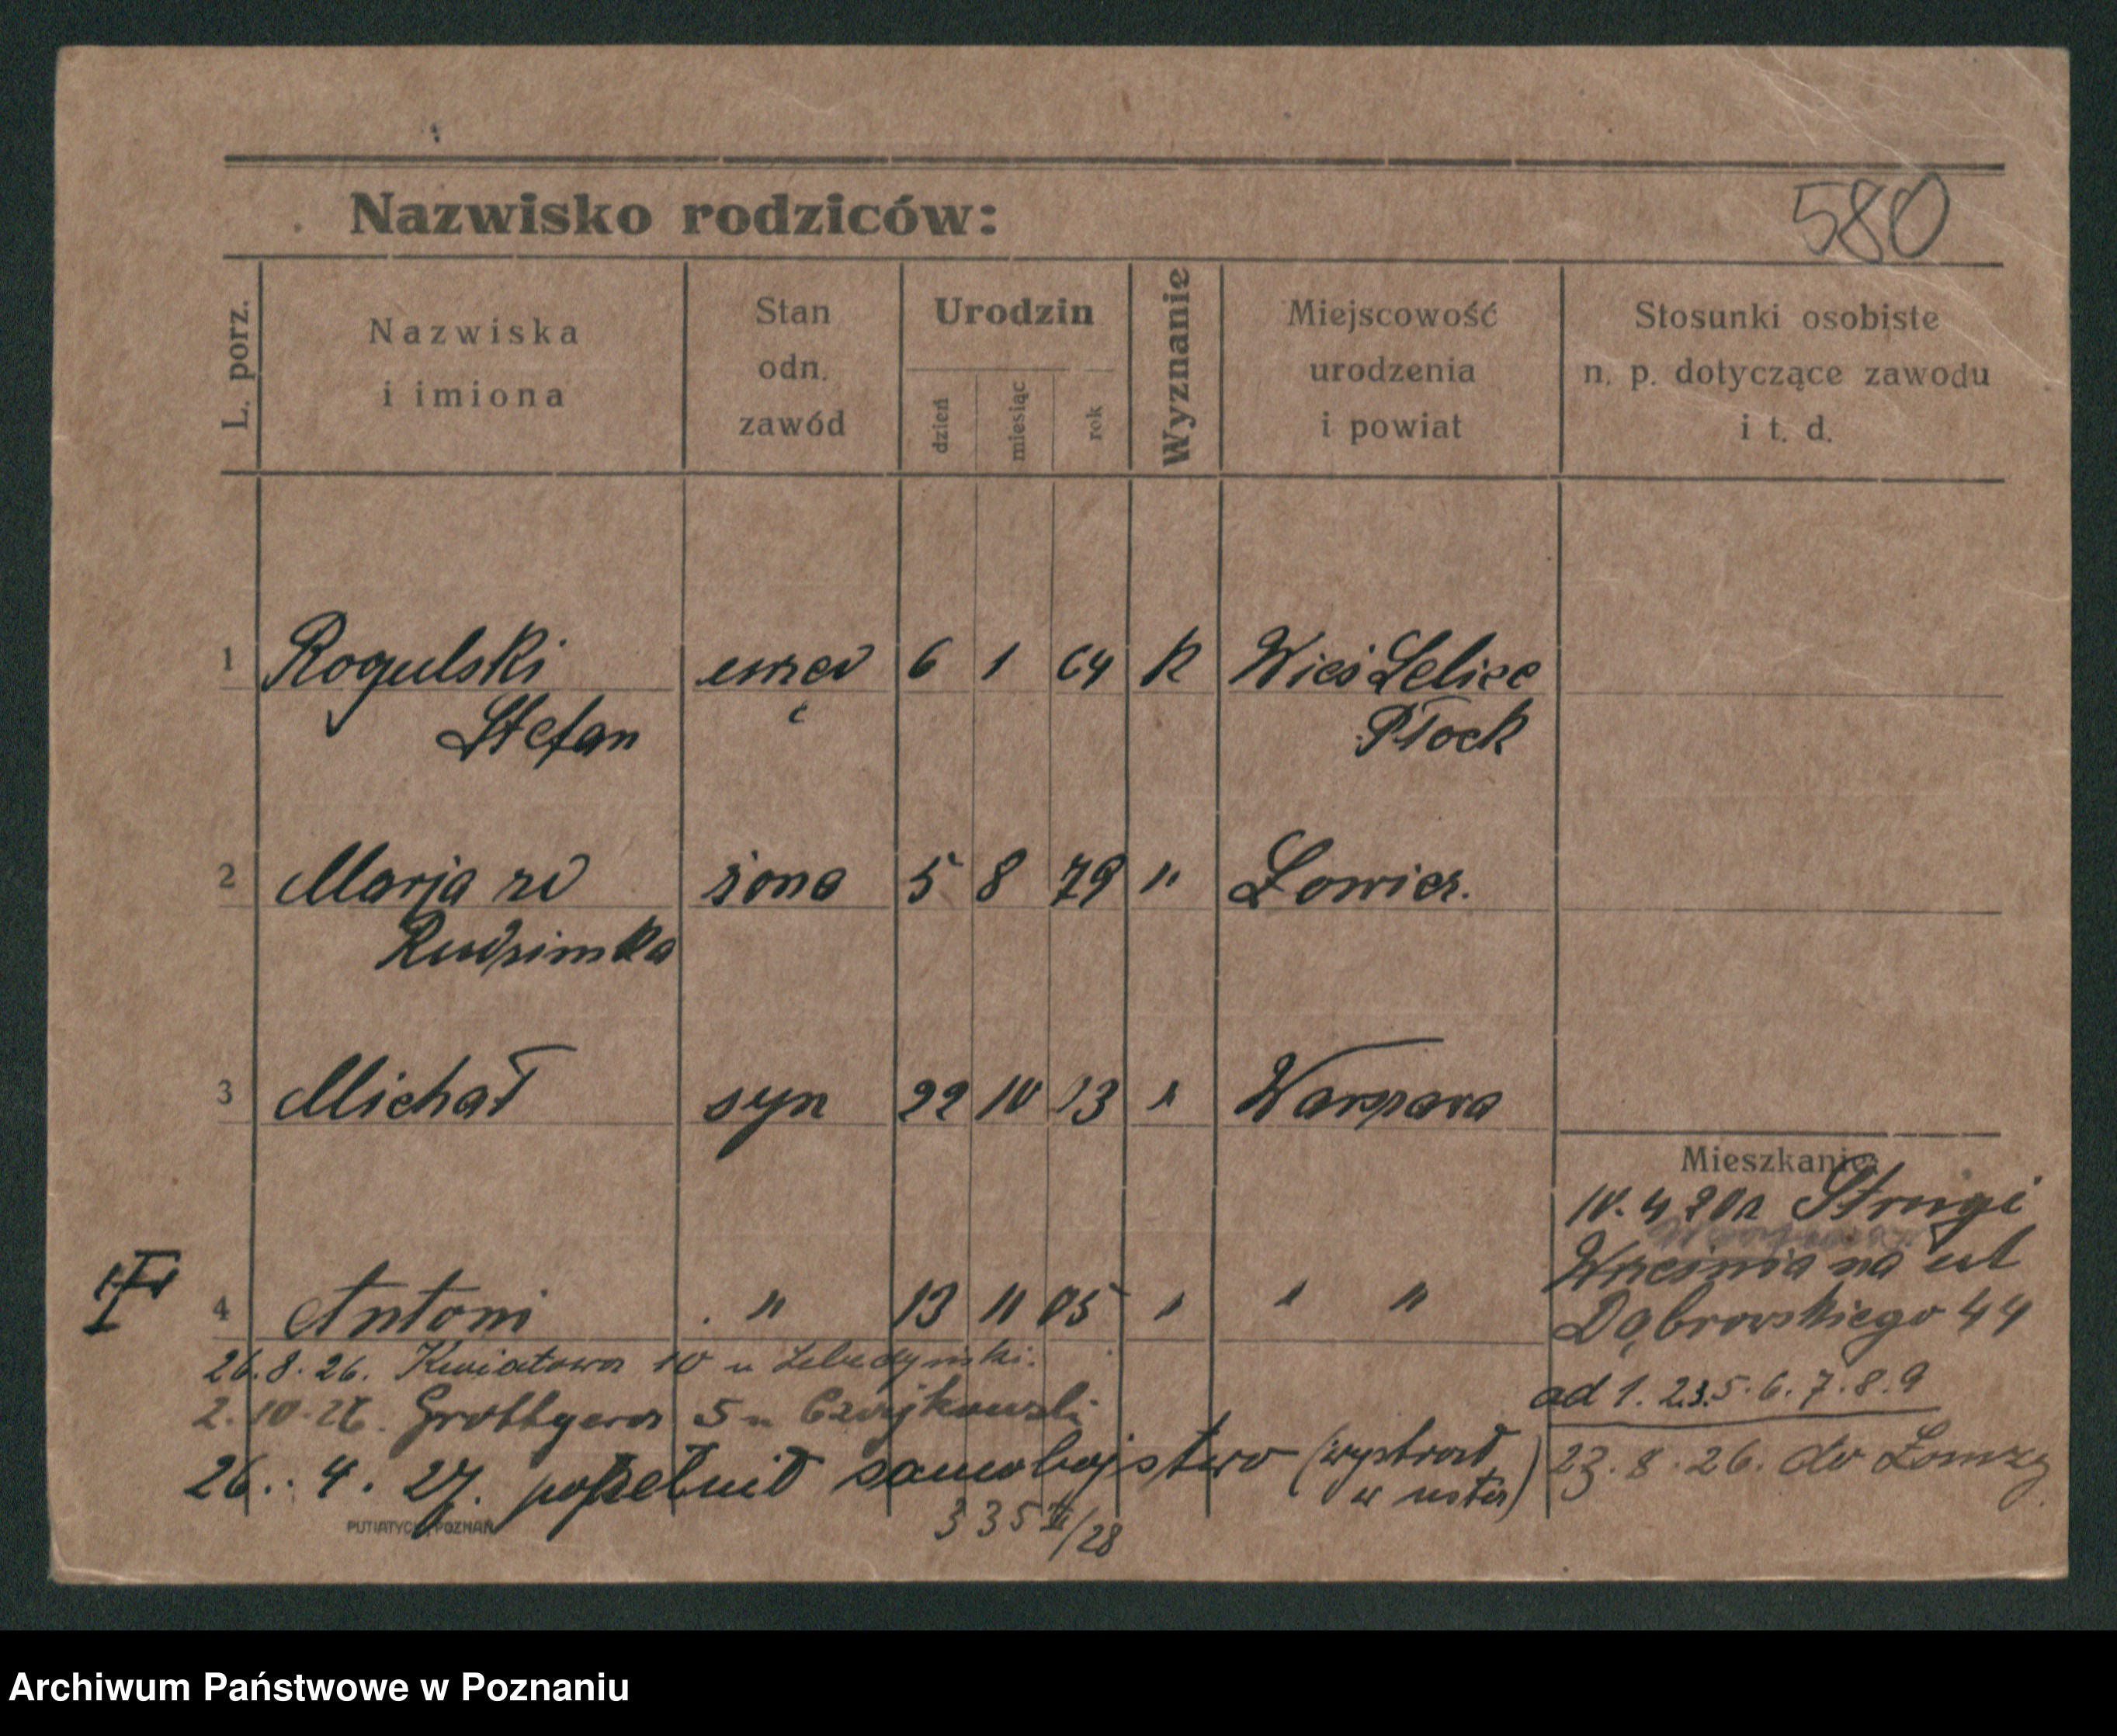 Nazwisko rodziców:
580
L. porz.
Nazwiska
i imiona
Stan
odn.
zawód
Urodzin
dzień
miesiąc
rok
Wyznanie
Miejscowość
urodzenia
i powiat
Stosunki osobiste
n. p. dotyczące zawodu
i t. d.
1 Rogulski 6 1 64 k Wieś Lelice
Stefan Płock
2 Marja żona 5 8 79 " Łowicz.
3 Michał syn 22 10 03 " Warszawa
Mieszkanie:
Września na ul
Dąbrowskiego 44
ad 1. 2.3.5. 6. 7. 8. 9
23. 8. 26. do Łomży
4 Antoni " 13 11 05 " " "
26. 8. 26. Kwiatowa 10 u Lebedyński.
2. 10. 26. Grottgera 5 u Czajkowski
26. 4. 27. popełnił samobójstwo (wystrzał
w usta)
335 /28
PUTIATYCKI, POZNAŃ
Archiwum Państwowe w Poznaniu